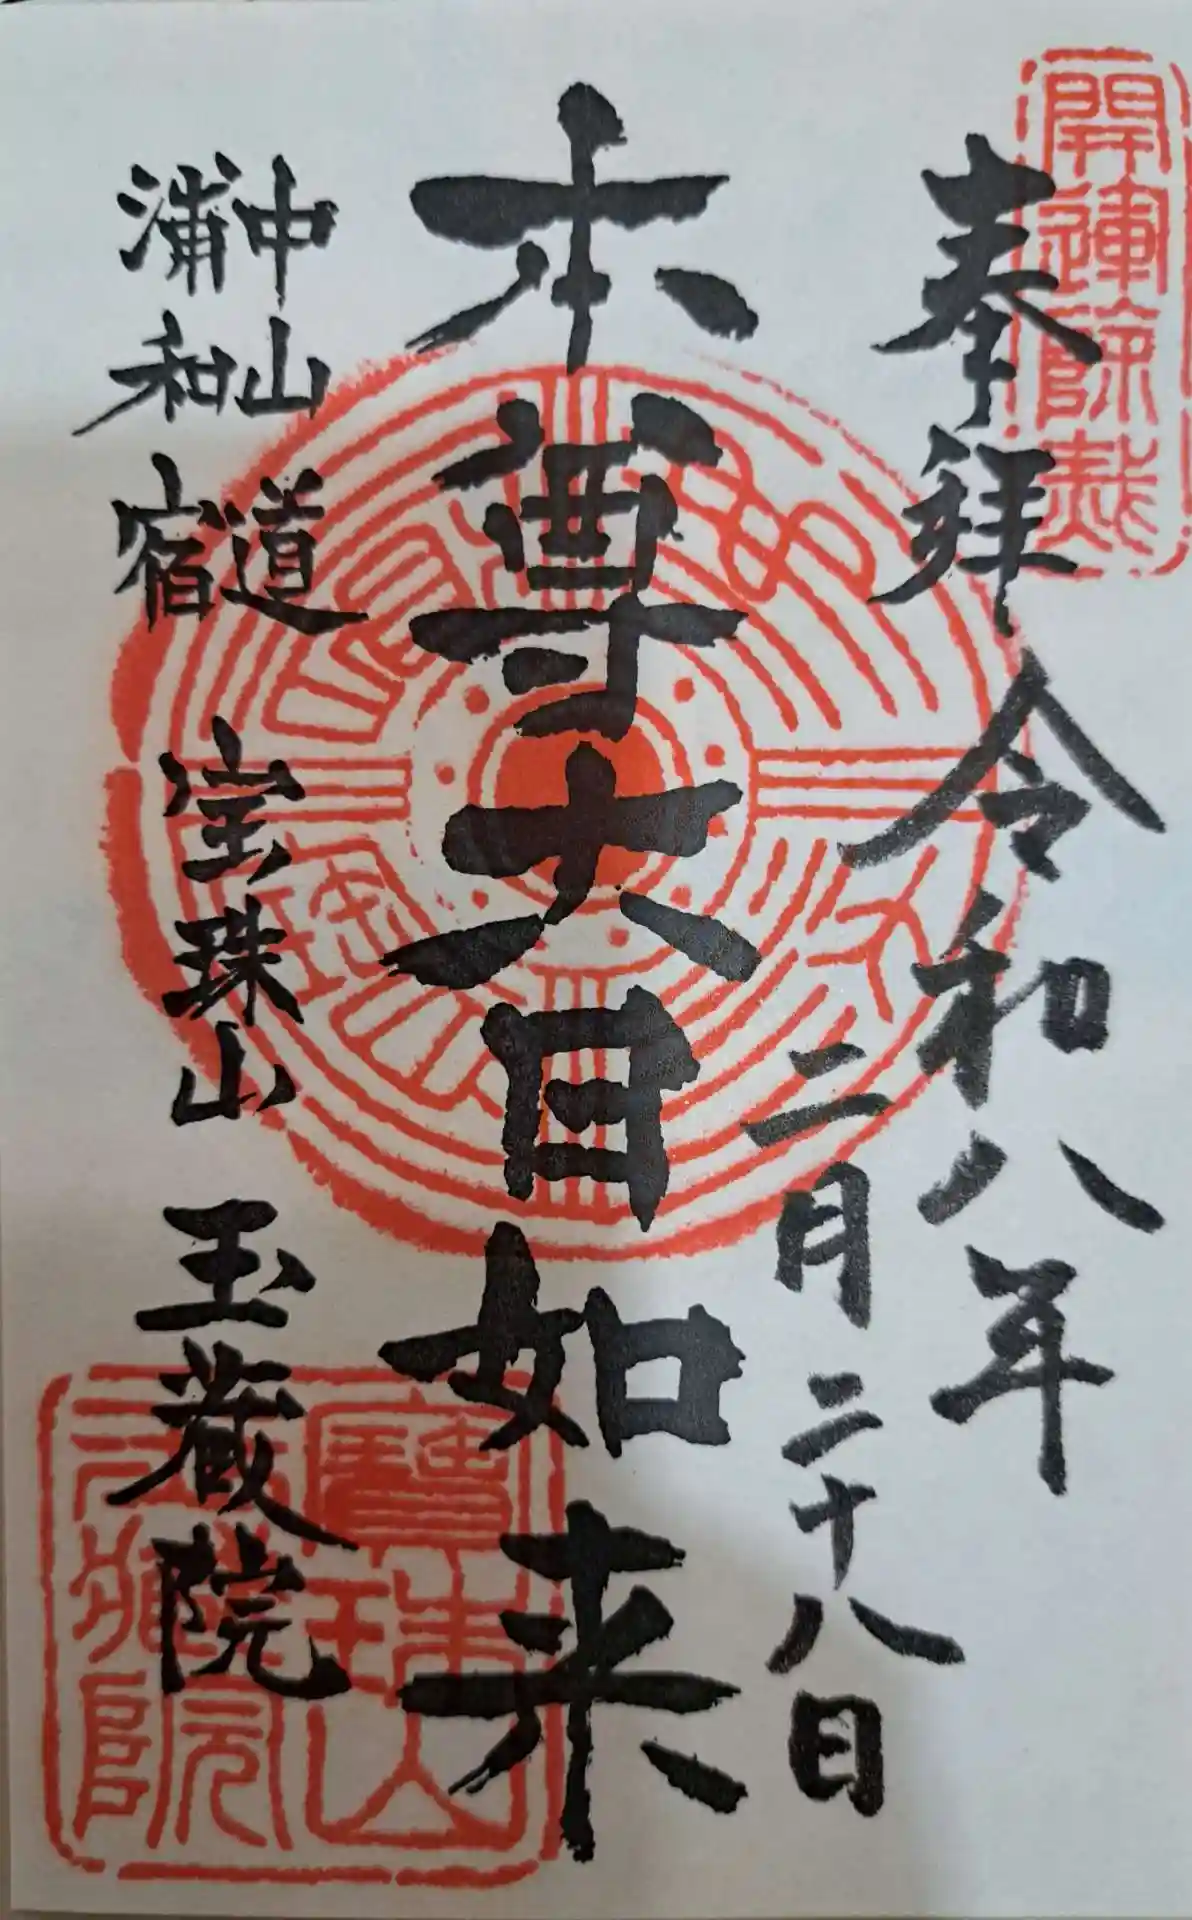 開運除災
奉拝
令和八年
二月二十八日
本尊大日如来
中山道
浦和宿
宝珠山 玉蔵院
寶珠山
玉蔵院